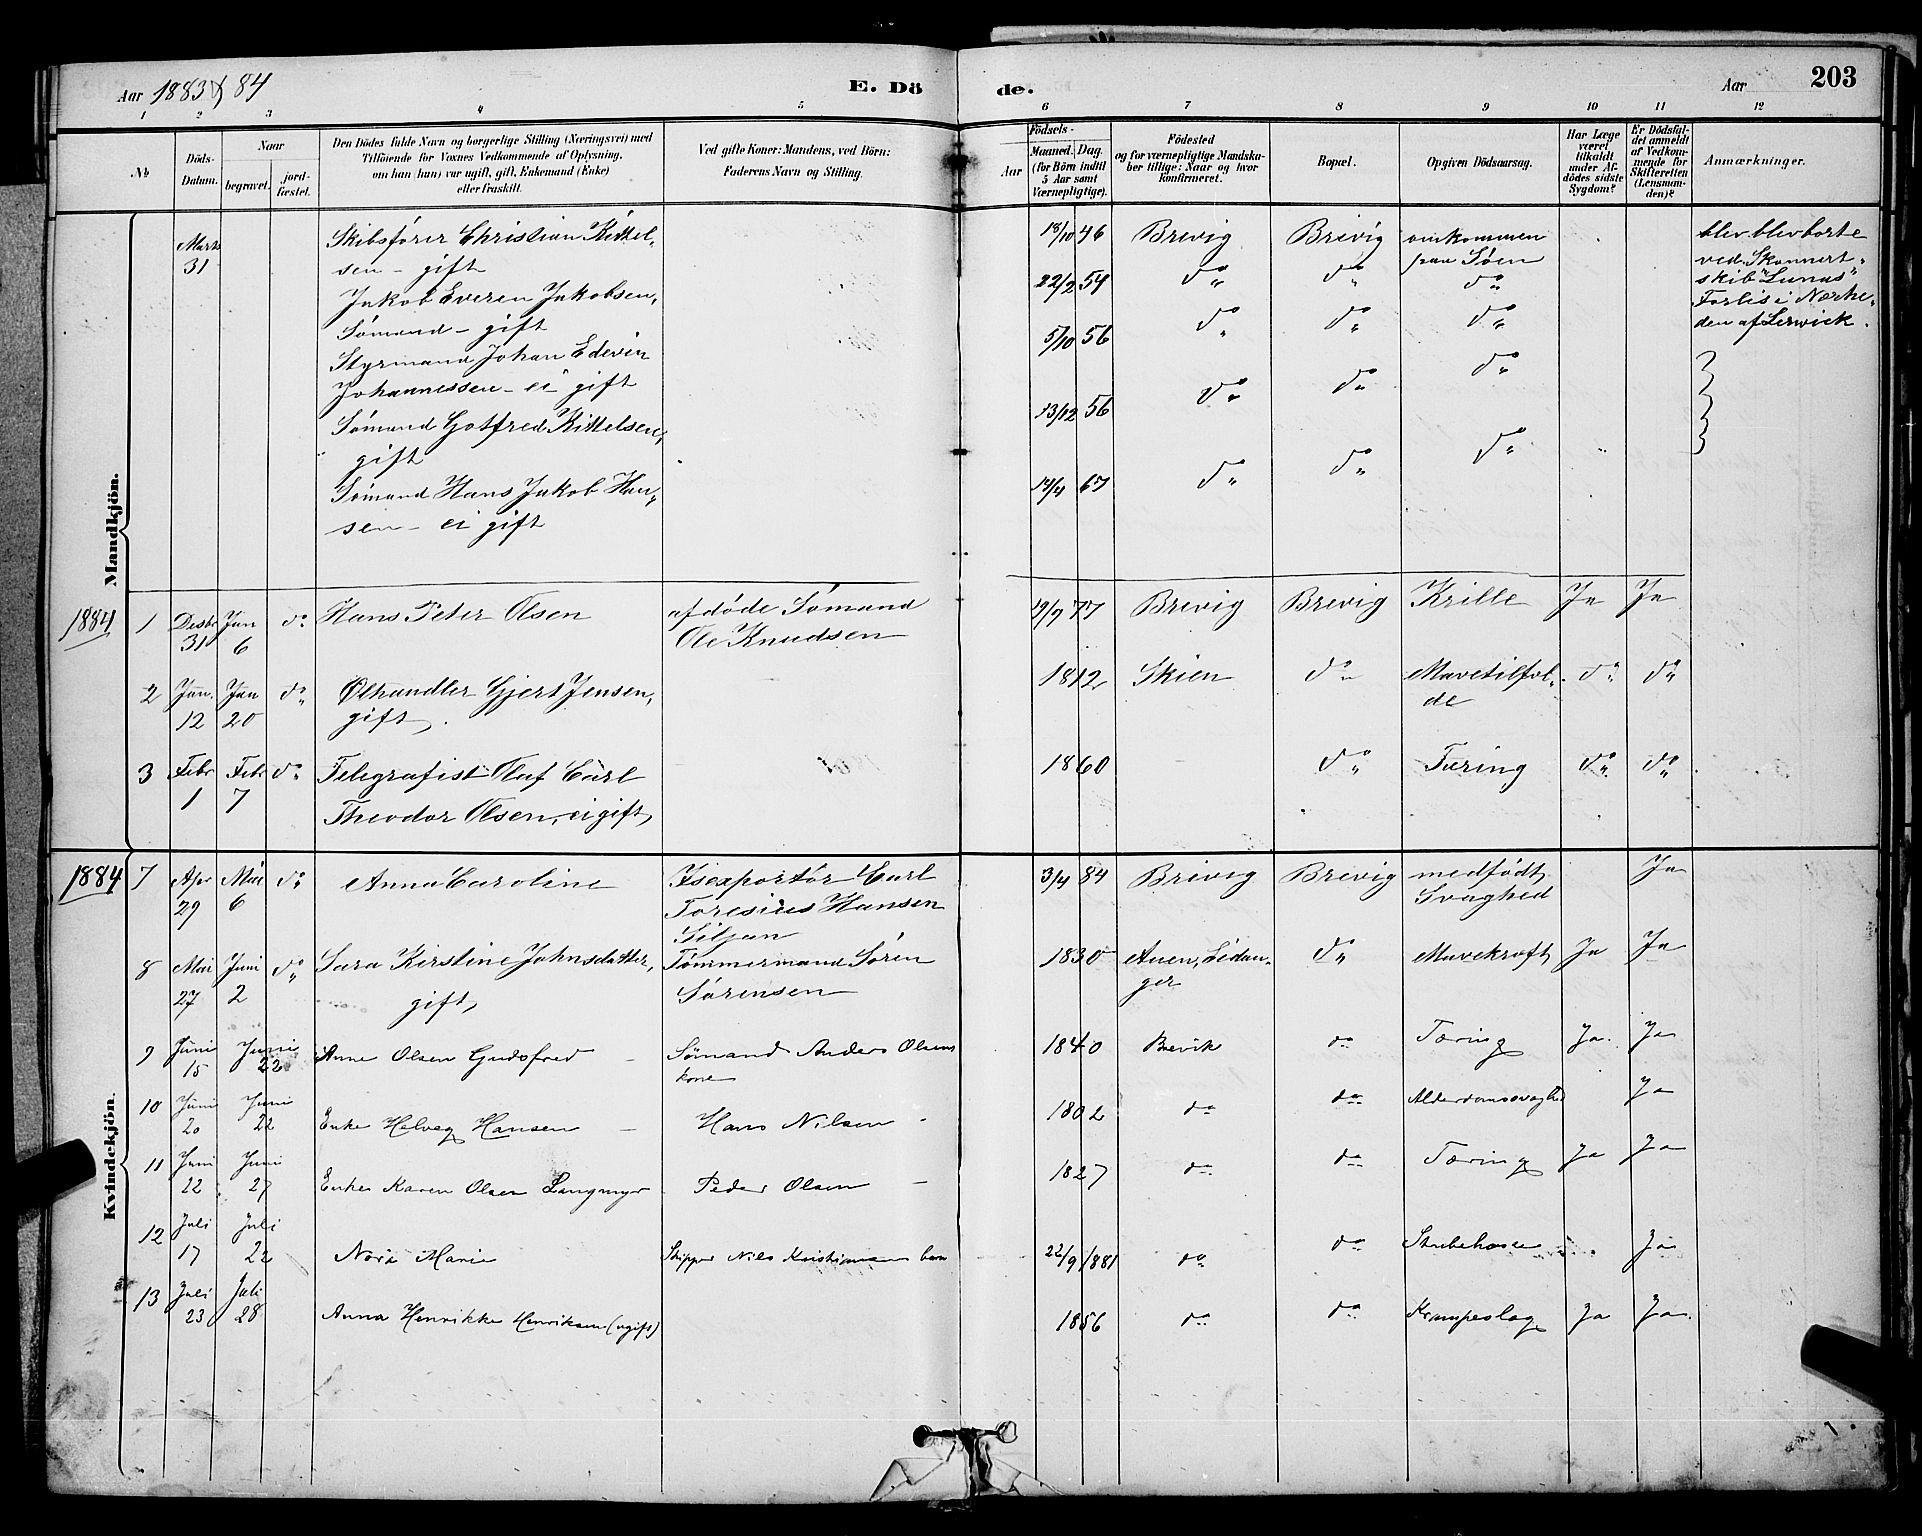 Aar 1883 & 84 E. Dö de. Aar 203
1 2 3 4 5 6 7 8 9 10 11 12
No
Döds-Datum.
Naar
begravet.
jord-fæstet.
Den Dödes fulde Navn og borgerlige Stilling (Næringsvei) med
Tilföiende for Voxnes Vedkommende af Oplysning,
om han (hun) var ugift, gift, Enkemand (Enke)
eller fraskilt.
Ved gifte Koner: Mandens, ved Börn:
Faderens Navn og Stilling.
Födsels-
Aar
Maaned.
Dag.
(for Börn indtil
5 Aar samt
Værnepligtige).
Födested
og for værnepligtige Mandska-
ber tillige: Naar og hvor
konfirmeret.
Bopæl.
Opgiven Dödsaarsag.
Har Læge
været
tilkaldt
under Af-
dödes sidste
Sygdom?
Er Dödsfal-
det anmeldt
af Vedkom-
mende for
Skifteretten
(Lensman-
den)?
Anmærkninger.
Mandkjön.
Marts 31 Skibsfører Christian Kittel-
sen - gift
18/10 46 Brevig Brevig omkommen
paa Søen
blev blev borte
ved Skonnert-
skib "Lunas"
Forlis i Nærhe-
den af Lerwick.
Jakob Everen Jakobsen,
Sømand - gift
22/2 54 do do do
Styrmand Johan Edevin
Johannessen - ei gift
5/10 56 do do do
Sømand Gotfred Kittelsen,
gift
13/12 56 do do do
Sømand Hans Jakob Han-
sen - ei gift
14/4 67 do do do
1884 1 Desbr 31 Jan 6 do Hans Peter Olsen afdøde Sømand
Ole Knudsen
19/9 77 Brevig Brevig Krille Ja Ja
2 Jan. 12 Jan 20 do Ølhandler Gjert Jensen,
gift.
1812 Skien do Mavetilfæl-
de do do
3 Febr 1 Febr 7 do Telegrafist Olaf Carl
Theodor Olsen, ei gift,
1860 do Tæring do do
Kvindekjön.
1884 7 Apr 29 Mai 6 do Anna Caroline Isexportør Carl
Toresius Hansen
Siljan
3/4 84 Brevig Brevig medfødt
Svaghed Ja
8 Mai 27 Juni 2 do Sara Kirstine Johnsdatter,
gift,
Tømmermand Søren
Sørensen
1830 Auen, Eidan-
ger do Mavekræft Ja Ja
9 Juni 15 Juni 22 Anne Olsen Gudsfred - Sømand Anders Olsens
kone
1840 Brevik do Tæring Ja Ja
10 Juni 20 Juni 22 Enke Helveg Hansen - Hans Nilsen -
1802 do do Alderdomssvaghed Ja
11 Juni 22 Juni 27 Enke Karen Olsen Langmyr Peder Olsen -
1827 do do Tæring Ja Ja
12 Juli 17 Juli 22 Nora Marie Skipper Nils Kristiansens barn
22/9 1881 do do Strubehoste Ja
13 Juli 23 Juli 28 Anna Henrikke Henriksen (ugift)
1856 do do Krampeslag Ja Ja.